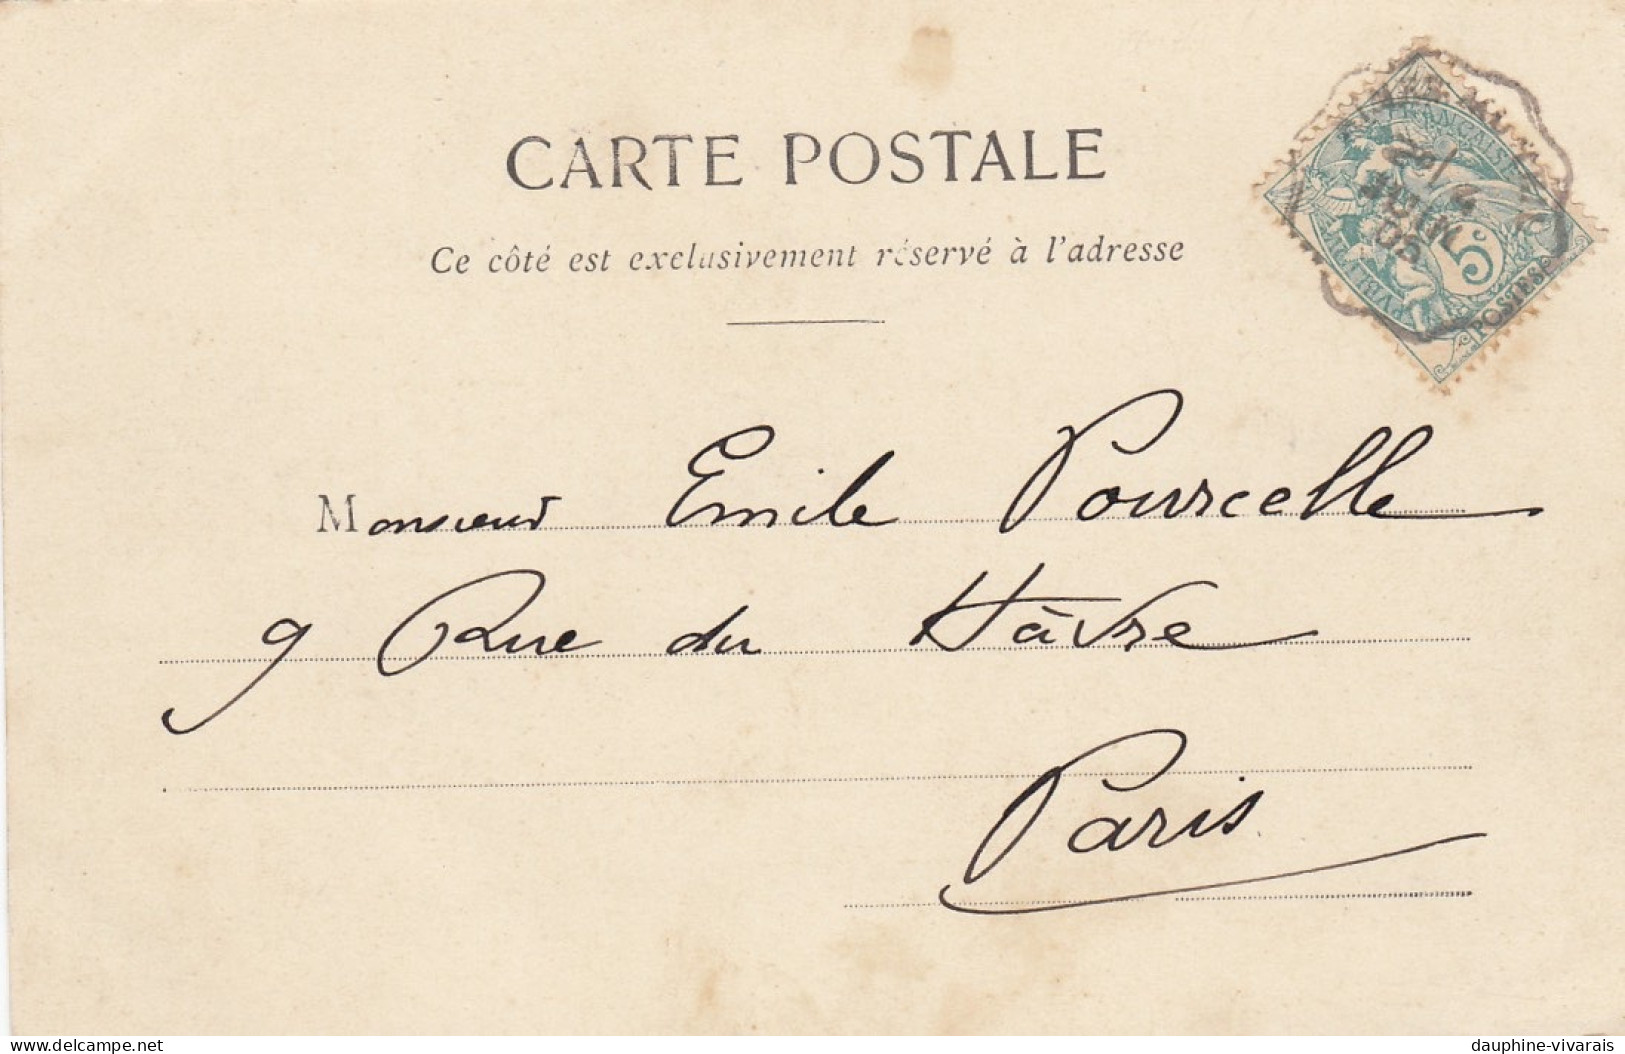 CARTE POSTALE
Ce côté est exclusivement réservé à l'adresse
5c
POSTES
JUIL
05
Monsieur Emile Pourcelle
9 Rue du Hâvre
Paris
delcampe.net
dauphine-vivarais